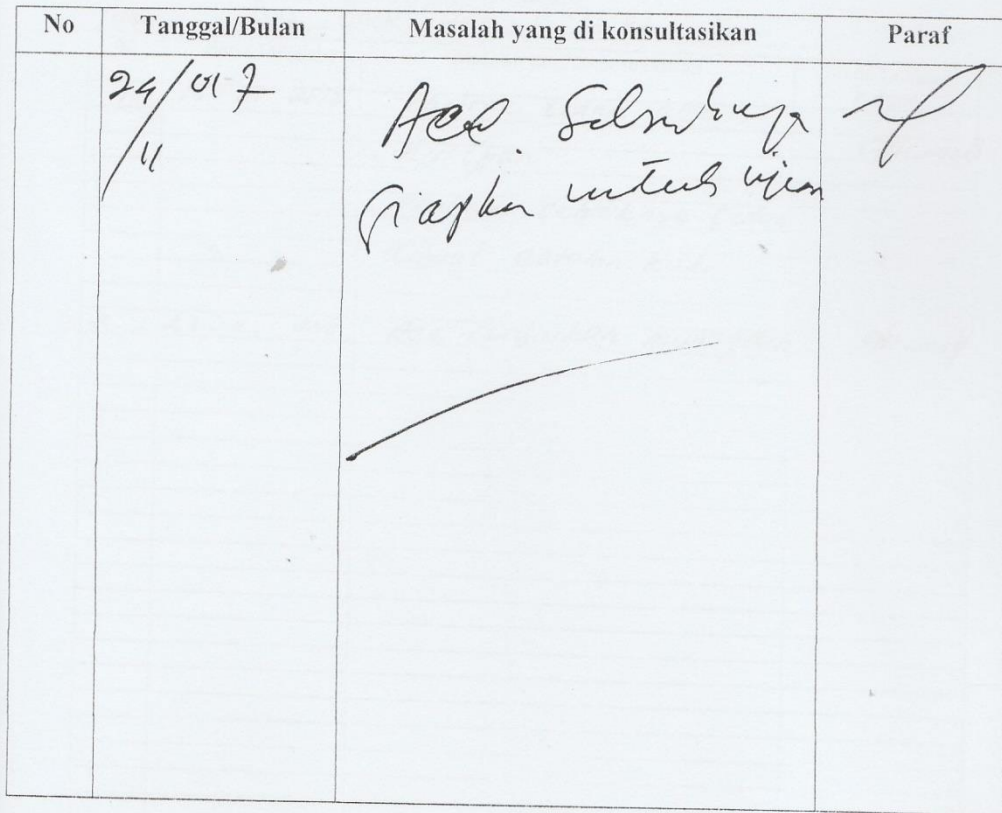 No Tanggal/Bulan Masalah yang di konsultasikan Paraf
24/017 Acc. Seluruhnya
/11 siapkan untuk ujian